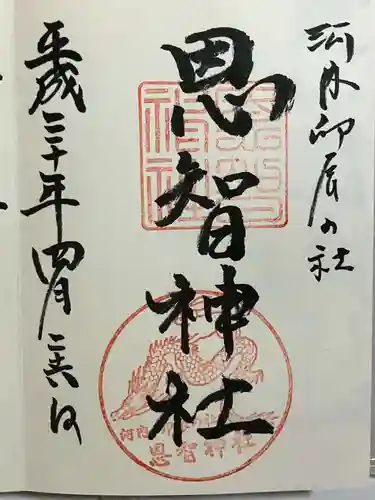 河内卯辰の社
恩智神社
平成三十年四月二十六日
恩智神社
河内
恩智神社